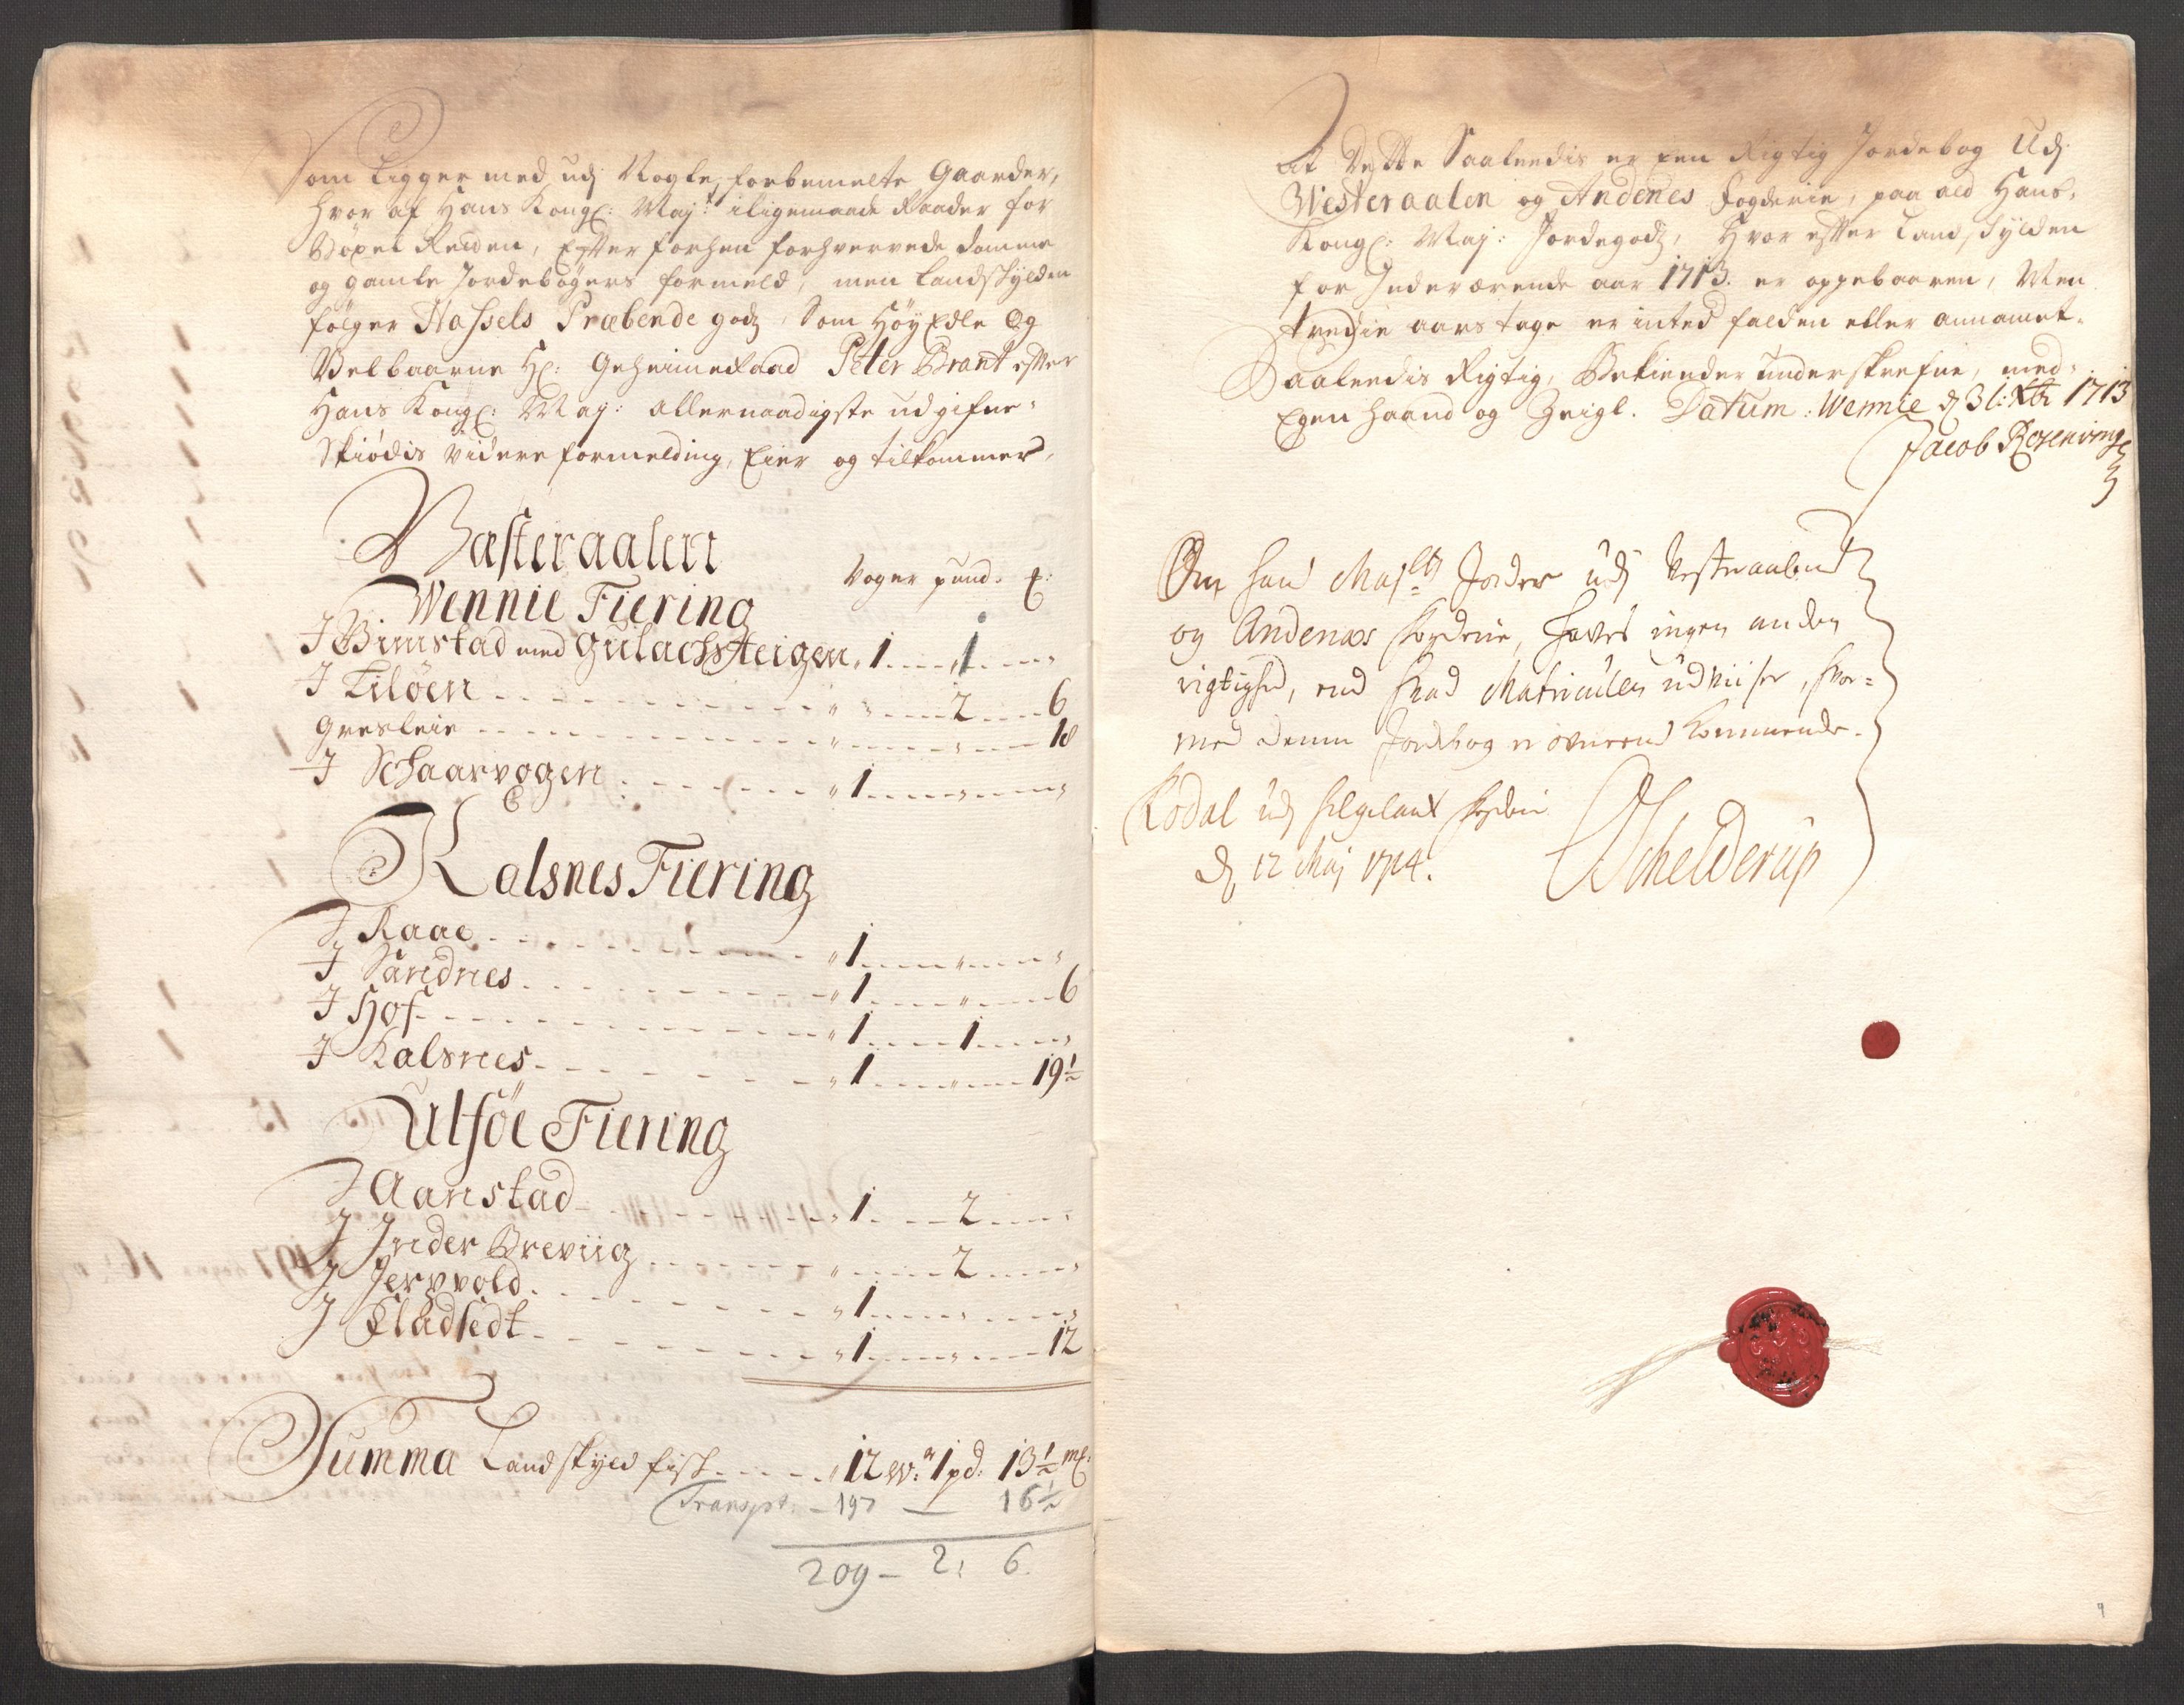 Som Ligger med udj Nogle forbemelte Gaarder,
hvor af Hans Kongl: Maj:t iligemaade Raader for
Böxel Reiden, Efter forhen forhvervede Domme
og gamle Jordebögers formeld, men Landskylden
fölger Hassels Præbende godz, Som Höy Edle Og
Velbaarne Hr: Geheimeraad Peter Brant efter
Hans Kongl: Maj: allernaadigste udgifne
Skiödis videre formelding, Eier og tilkommer,
Væsteraalen
Voger pund. ℔:
Wennie Fiering
J Bimstad med Gulachsteigen 1 1
J Tilöen 2 6
Gresleie 18
J Schaarvogen 1
Kalsnes Fiering
J Raae 1
J Sandnes 1 6
J Hof 1 1
J Kalsnes 1 19½
Ulföe Fiering
J Aanstad 1 2
J Jnder Breviig 2
J Jerzvold 1
J Fladsedt 1 12
Summa Landskyld fisk 12 w: 1 pd: 13½ m℔:
Transpt. 197 — 16½
209 — 2: 6.
At Dette Saaledis er een Rigtig Jordebog Udj
Westeraalen og Andenes fogderie, paa ald Hans
Kongl: Maj: Jordegodz, Hvor efter Landskylden
for Jnderværende aar 1713. er oppebaaren, Men
tredie aars tage er inted falden eller annamet.
Saaledis Rigtig, Bekiender underskrefne, med
Egen haand og Zeigl. Datum Wennie d 31: Xbr 1713
Jacob Rosenvinge
Om hans Maj:ts Jorder udj Vesteraalen
og Andenæs fogderie, haves ingen anden
rigtighed, end hvad Matriculen udviiser, hvor-
med denne Jordebog er overeens kommende.
Rodal udj helgelands fogderie
d, 12 Maj 1714.
Schelderup
9